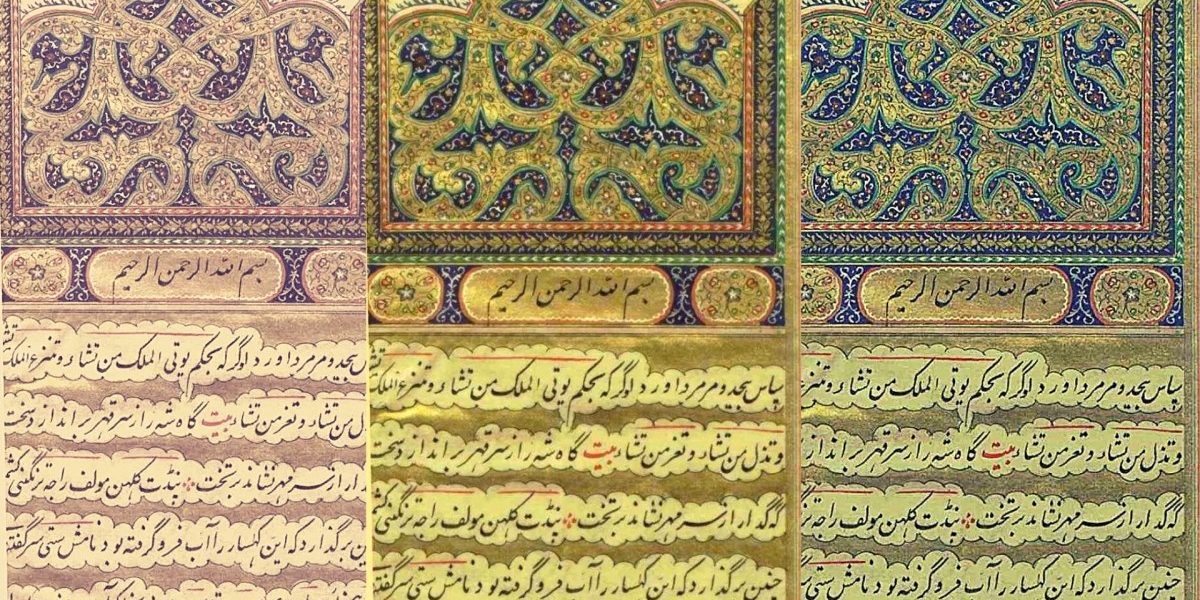 بسم الله الرحمن الرحیم
بیحد و مر مر داور دادگر که بحکم یوتی الملک من تشاء و تنزع الملک
من تشاء و تعز من تشاء بیت گاه شه را ز سر قهر بر اندازد سخت
را ز سر مهر نشاند بر تخت پندت کلهن مولف راجه ترنگنی
بر گذارد که این کهسار را آب فرو گرفته بود نامش ستی سر
بسم الله الرحمن الرحیم
سپاس بیحد و مر مر داور دادگر که بحکم یوتی الملک من تشاء و تنزع الملک
و تذل من تشاء و تعز من تشاء بیت گاه شه را ز سر قهر بر اندازد سخت
که گدا را ز سر مهر نشاند بر تخت پندت کلهن مولف راجه ترنگنی
چنین بر گذارد که این کهسار را آب فرو گرفته بود نامش ستی سر
بسم الله الرحمن الرحیم
سپاس بیحد و مر مر داور دادگر که بحکم یوتی الملک من تشاء و
و تذل من تشاء و تعز من تشاء بیت گاه شه را ز سر قهر بر
که گدا را ز سر مهر نشاند بر تخت پندت کلهن مولف راجه
چنین بر گذارد که این کهسار را آب فرو گرفته بود نامش ستی